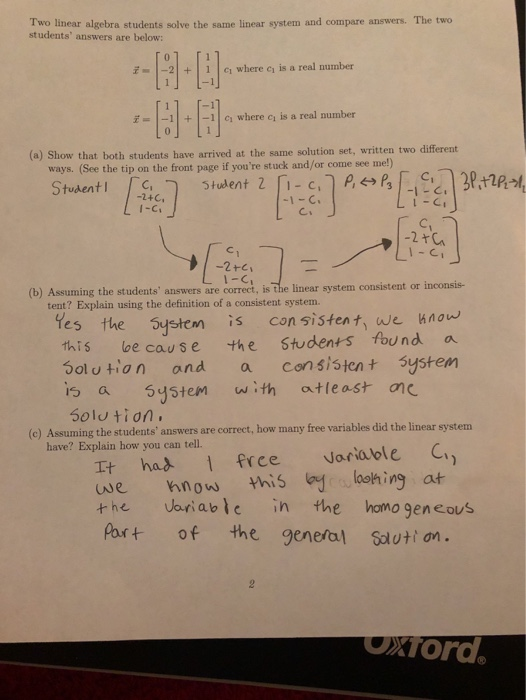 Two linear algebra students solve the same linear system and compare answers. The two
students' answers are below:
x⃗ = [0 -2 1] + [1 1 -1] c₁ where c₁ is a real number
x⃗ = [1 -1 0] + [-1 -1 1] c₁ where c₁ is a real number
(a) Show that both students have arrived at the same solution set, written two different
ways. (See the tip on the front page if you're stuck and/or come see me!)
Student 1 [C₁ -2+C₁ 1-C₁] Student 2 [1-C₁ -1-C₁ C₁] P₁ ↔ P₃ [C₁ -1-C₁ 1-C₁] 3P₁+2P₂→
[C₁ -2+C₁ 1-C₁] = [C₁ -2+C₁ 1-C₁]
(b) Assuming the students' answers are correct, is the linear system consistent or inconsis-
tent? Explain using the definition of a consistent system.
Yes the System is consistent, we know
this because the Students found a
Solution and a consistent System
is a System with atleast one
Solution.
(c) Assuming the students' answers are correct, how many free variables did the linear system
have? Explain how you can tell.
It had 1 free variable C₁,
we know this by looking at
the Variable in the homogeneous
Part of the general Solution.
2
Oxford®